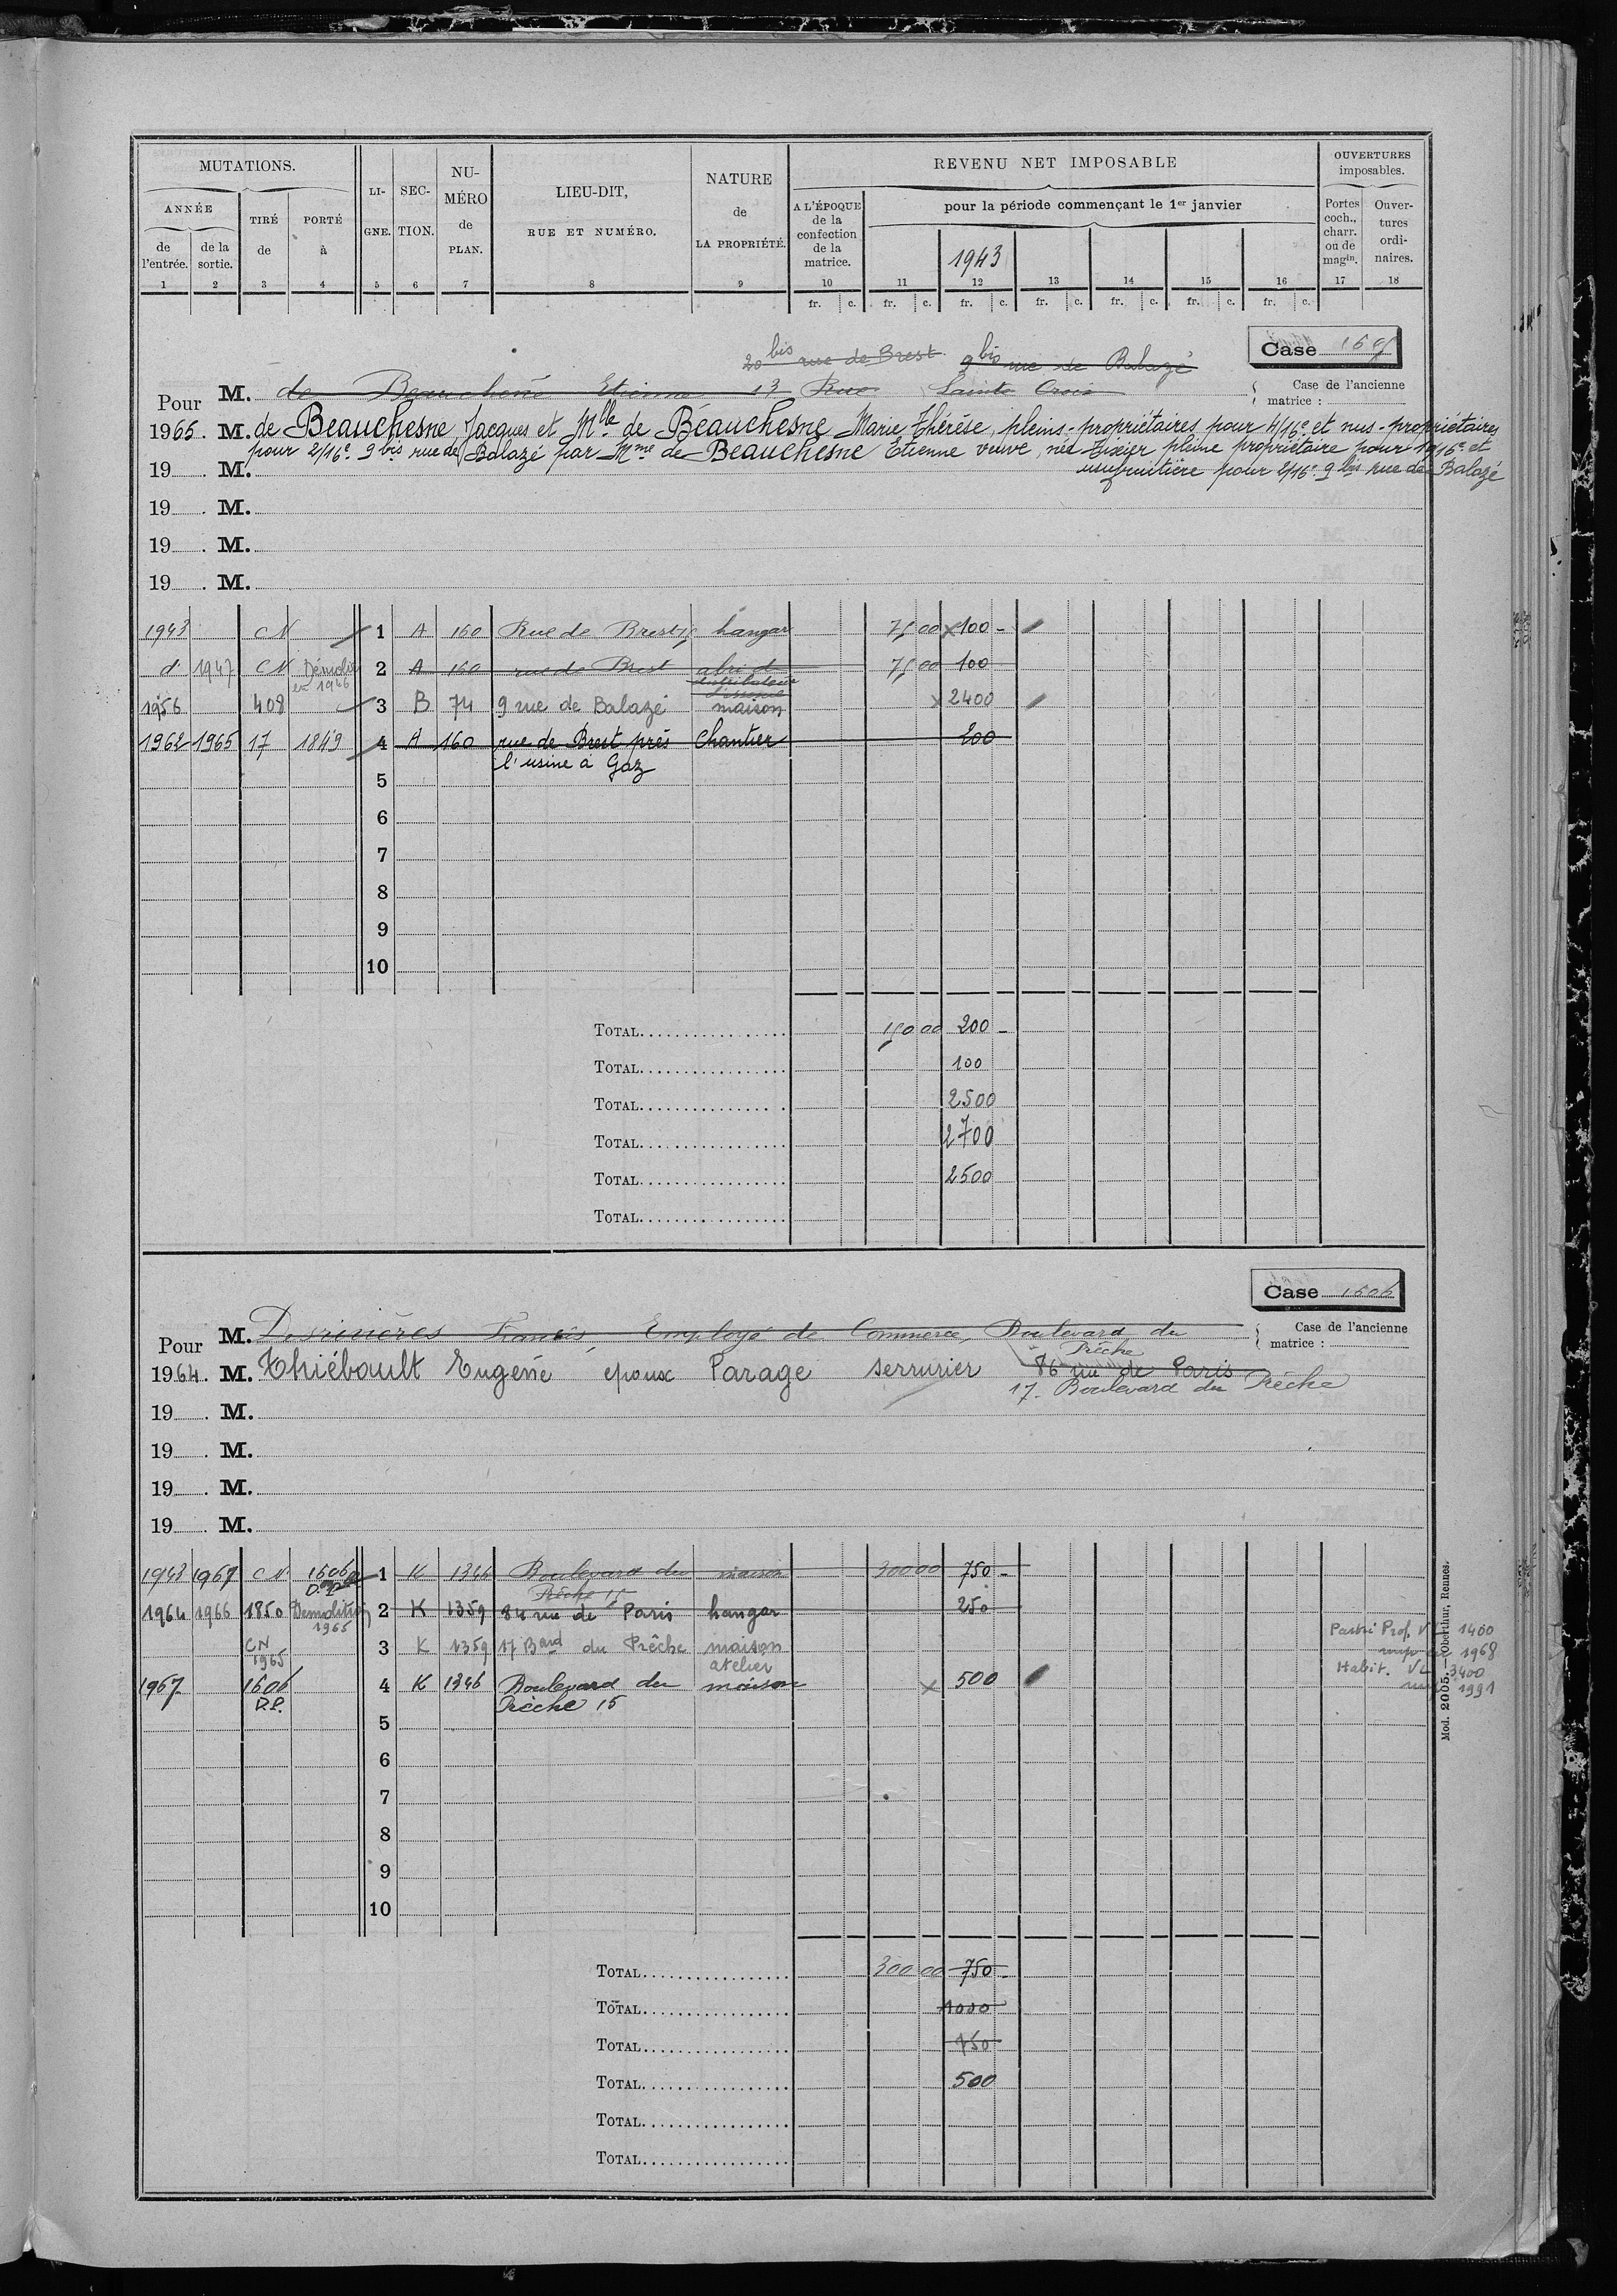 MUTATIONS.
ANNÉE
de l'entrée.
de la sortie.
TIRÉ de
PORTÉ à
LIGNE.
SECTION.
NUMÉRO de PLAN.
LIEU-DIT, RUE ET NUMÉRO.
NATURE de LA PROPRIÉTÉ.
REVENU NET IMPOSABLE
A L'ÉPOQUE de la confection de la matrice.
pour la période commençant le 1er janvier
1943
OUVERTURES imposables.
Portes coch., charr. ou de magin.
Ouvertures ordinaires.
1 2 3 4 5 6 7 8 9 10 11 12 13 14 15 16 17 18
fr. c. fr. c. fr. c. fr. c. fr. c. fr. c. fr. c.
Case 1605
20 bis rue de Brest 9 bis rue de Balazé
Case de l'ancienne matrice :
Pour M. de Beauchesne Etienne 13 Rue Sainte Croix
1965. M. de Beauchesne Jacques et Mlle de Beauchesne Marie Thérèse, pleins-propriétaires pour 4/16e et nus-propriétaires
pour 2/16e 9 bis rue de Balazé par Mme de Beauchesne Etienne veuve, née Tixier pleine propriétaire pour 10/16e et
19 . M. usufruitière pour 2/16e 9 bis rue de Balazé
19 . M.
19 . M.
19 . M.
1943 CN 1 A 160 Rue de Brest hangar 75 00 100 -
d° 1947 CN Démolie en 1946 2 A 160 rue de Brest abri de distributeur d'essence 75 00 100
1956 408 3 B 74 9 rue de Balazé maison 2400
1962 1965 17 1849 4 A 160 rue de Brest près Chantier 200
l'usine a Gaz
5
6
7
8
9
10
TOTAL 150 00 200 -
TOTAL 100
TOTAL 2500
TOTAL 2700
TOTAL 2500
TOTAL
Case 1606
Case de l'ancienne matrice :
Pour M. Desrinières Francis, Employé de Commerce, Boulevard du
Prêche
1964. M. Thiébault Eugène epoux Parage serrurier 86 rue de Paris
17 Boulevard du Prêche
19 . M.
19 . M.
19 . M.
19 . M.
1943 1967 CN 1606 D.P. 1 K 1346 Boulevard du maison 300 00 750 -
Prêche 15
1964 1966 1850 Demolition 1965 2 K 1359 84 rue de Paris hangar 250
CN 1965 3 K 1359 17 Bard du Prêche maison atelier
Partie Prof. V L 1400
imp en 1968
Habit. VL 3400
1991
1967 1606 D.P. 4 K 1346 Boulevard du maison 500
Prêche 15
5
6
7
8
9
10
TOTAL 300 00 750 -
TOTAL 1000
TOTAL 750
TOTAL 500
TOTAL
TOTAL
Mod. 2005. — Oberthur, Rennes.